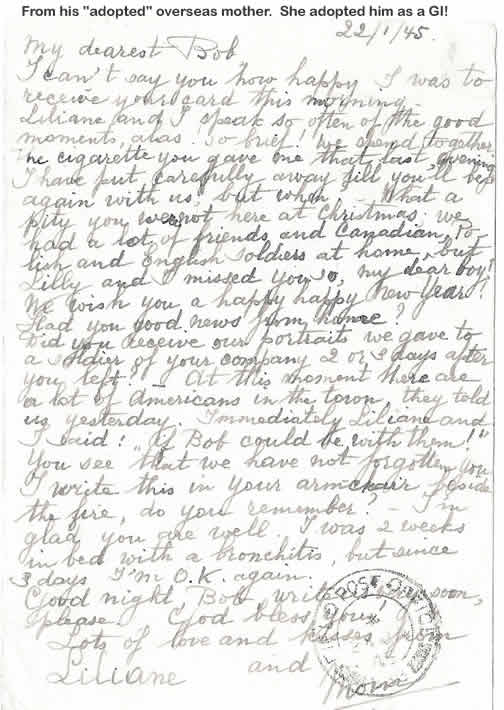 From his "adopted" overseas mother. She adopted him as a GI!
22/1/45.
My dearest Bob
I can't say you how happy I was to
receive your card this morning.
Liliane and I speak so often of the good
moments, alas so brief! we spend together.
The cigarette you gave me that last evening
I have put carefully away till you'll be
again with us, but when. - What a
pity you were not here at Christmas, we
had a lot of friends and Canadian, Po-
lish and English soldiers at home, but
Lilly and I missed you so, my dear boy!
We wish you a happy happy New Year!
Had you good news from home?
Did you receive our portraits we gave to
a soldier of your company 2 or 3 days after
you left? - At this moment there are
a lot of Americans in the town, they told
us yesterday. Immediately Liliane and
I said! "If Bob could be with them!"
You see that we have not forgotten you
I write this in your armchair beside
the fire, do you remember? - I'm
glad you are well. I was 2 weeks
in bed with a bronchitis, but since
3 days I'm O.K. again.
Good night Bob, write soon,
please. God bless you!
Lots of love and kisses from
Liliane and
Mom